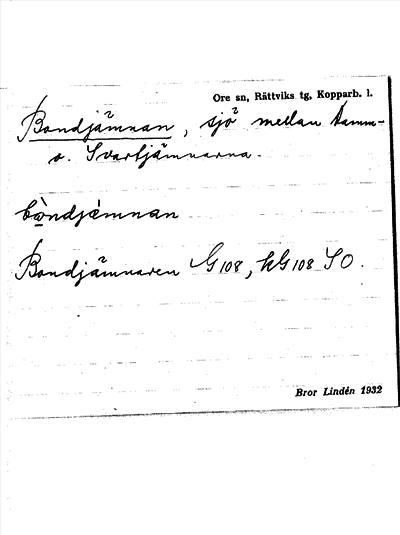 Ore sn, Rättviks tg, Kopparb. l.
Bondjämnan, sjö mellan Damm-
o. Svartjämnarna.
bòndjèmnan
Bondjämnaren G108, kG108 SO.
Bror Lindén 1932